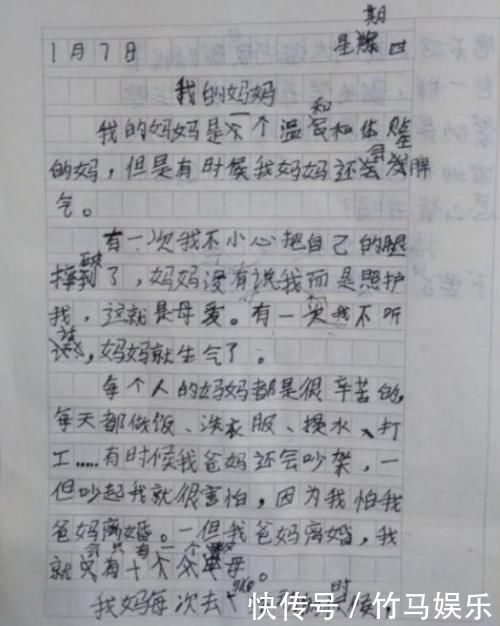 1月7日 星期四
我的妈妈
我的妈妈是一个温和和体贴
的妈,但是有时候我妈妈还会发脾
气。
有一次我不小心把自己的腿
摔破了,妈妈没有说我而是照护
我,这就是母爱。有一次我不听
话,妈妈就生气了。
每个人的妈妈都是很辛苦的,
每天都做饭、洗衣服、提水、打
工……有时候我爸妈还会吵架,一
但吵起我就很害怕,因为我怕我
爸妈离婚。一但我爸妈离婚,我
就会只有一个
我妈每次去
快传号/竹马娱乐